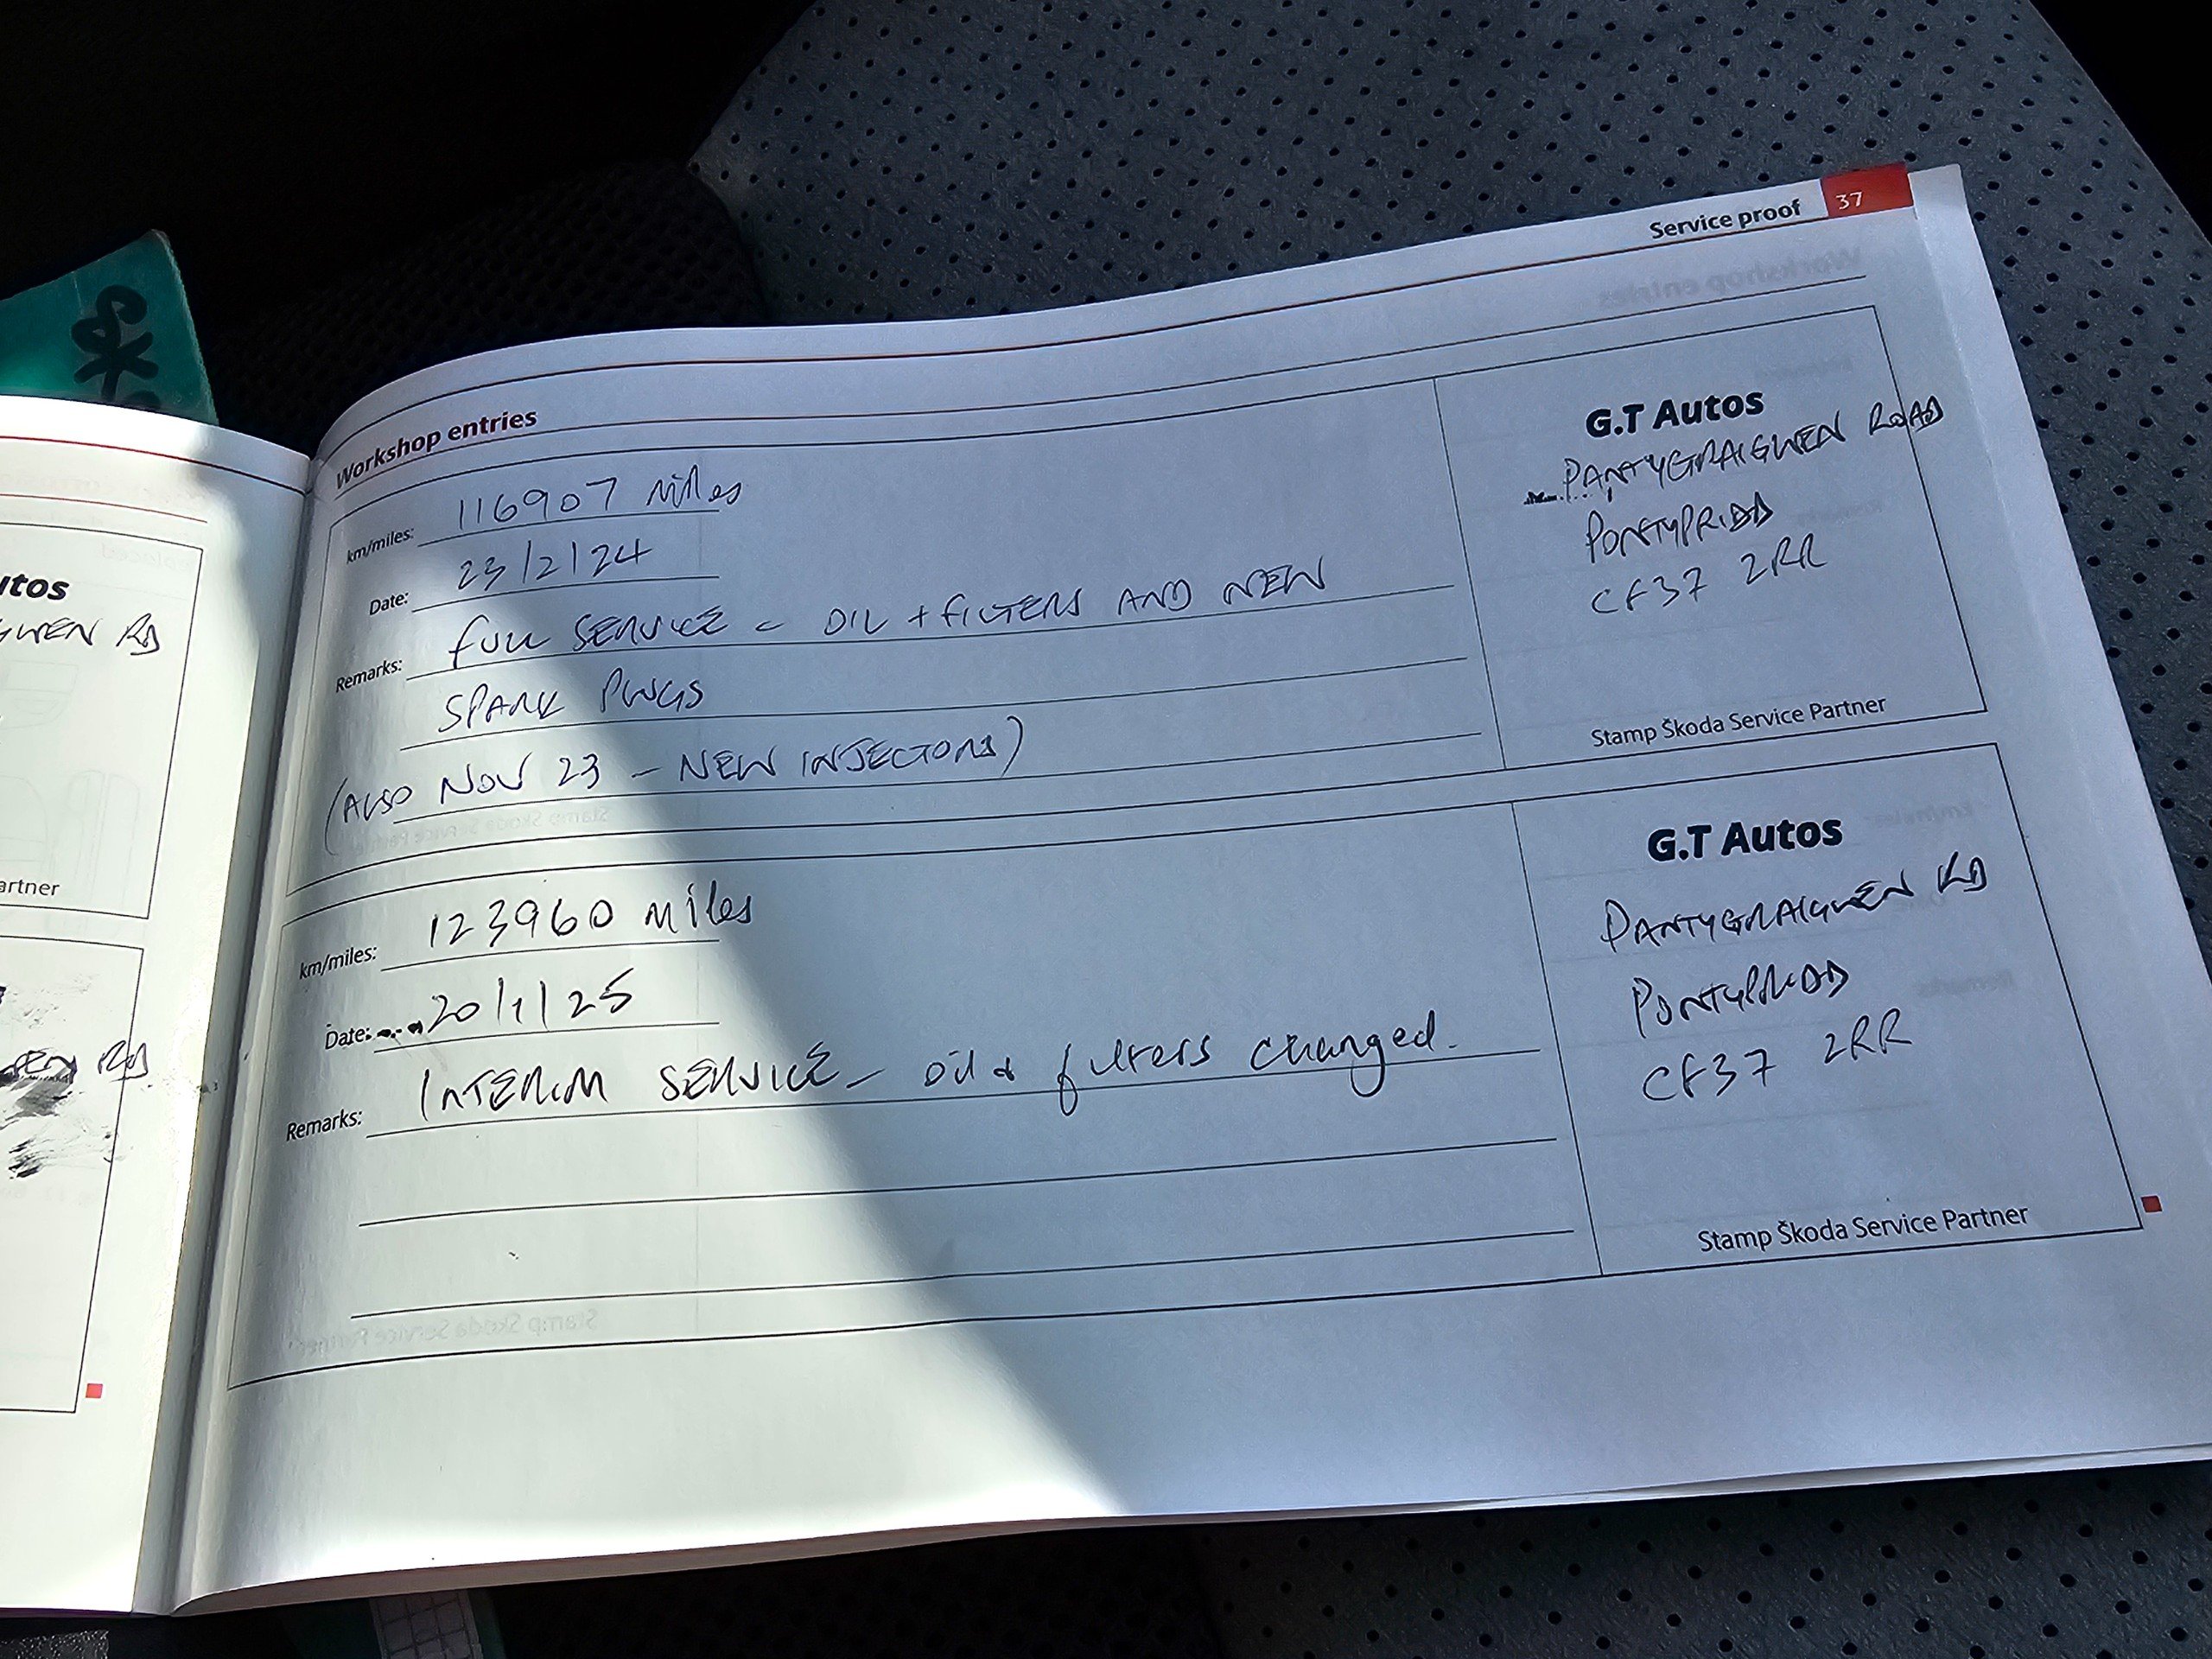 Service proof 37
Workshop entries
km/miles: 116907 Miles
Date: 23/2/24
Remarks: FULL SERVICE - OIL + FILTERS AND NEW
SPARK PLUGS
(ALSO NOV 23 - NEW INJECTORS)
G.T Autos
PANTYGRAIGWEN ROAD
PONTYPRIDD
CF37 2RR
Stamp Škoda Service Partner
km/miles: 123960 Miles
Date: 20/1/25
Remarks: INTERIM SERVICE - oil & filters changed.
G.T Autos
PANTYGRAIGWEN RD
PONTYPRIDD
CF37 2RR
Stamp Škoda Service Partner
utos
GWEN RD
artner
RD